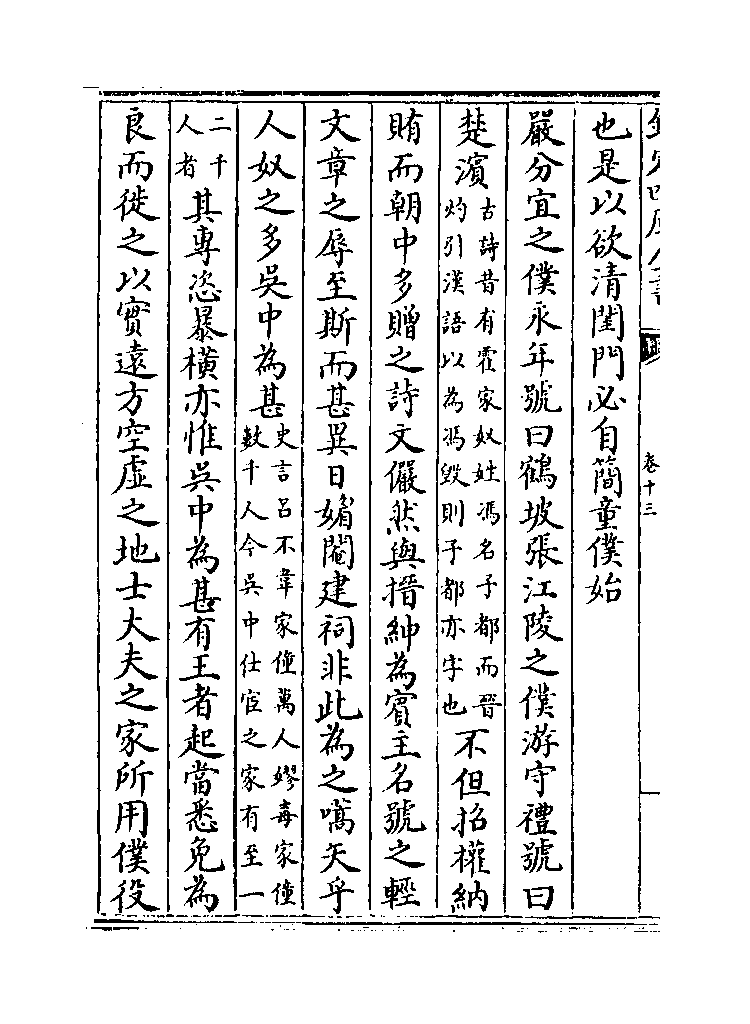 欽定四庫全書
卷十三
也是以欲清閨門必自簡童僕始
嚴分宜之僕永年號曰鶴坡張江陵之僕游守禮號曰
楚濱
古詩昔有霍家奴姓馮名子都而晉
灼引漢語以為馮毀則子都亦字也
不但招權納
賄而朝中多贈之詩文儼然與搢紳為賓主名號之輕
文章之辱至斯而甚異日媚閹建祠非此為之嚆矢乎
人奴之多吳中為甚
史言呂不韋家僮萬人嫪毐家僮
數千人今吳中仕宦之家有至一
二千
人者
其專恣暴橫亦惟吳中為甚有王者起當悉免為
良而徙之以實遠方空虛之地士大夫之家所用僕役